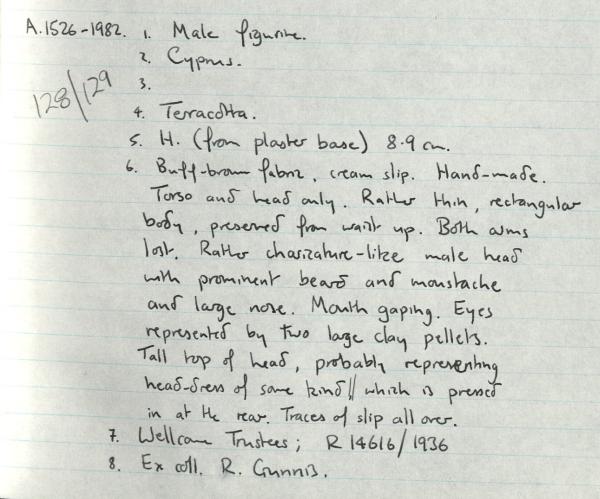 A.1526-1982. 1. Male figurine.
2. Cyprus.
3.
128/129
4. Terracotta.
5. H. (from plaster base) 8.9 cm.
6. Buff-brown fabric, cream slip. Hand-made.
Torso and head only. Rather thin, rectangular
body, preserved from waist up. Both arms
lost. Rather charicature-like male head
with prominent beard and moustache
and large nose. Mouth gaping. Eyes
represented by two large clay pellets.
Tall top of head, probably representing
head-dress of some kind // which is pressed
in at the rear. Traces of slip all over.
7. Wellcome Trustees; R 14616/1936
8. Ex coll. R. Gunnis.